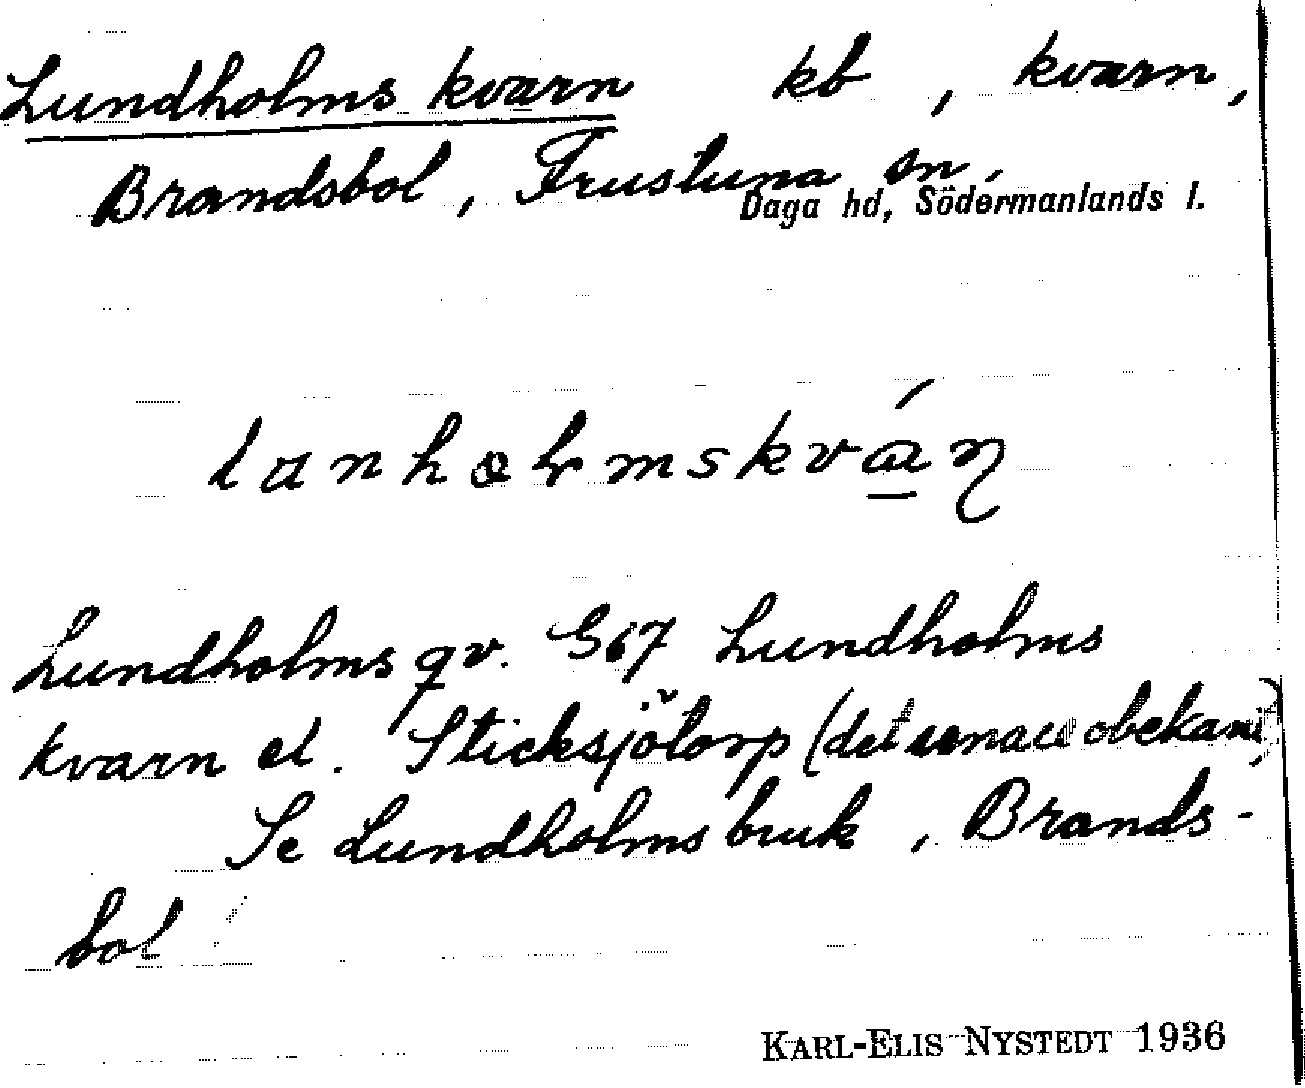 Lundholms kvarn kb , kvarn,
Brandsbol , Frustuna sn.
Daga hd, Södermanlands l.
Lundholms qv. G67 Lundholms
kvarn el. Sticksjötorp (det senare obekant)
Se Lundholms bruk , Brands-
bol
KARL-ELIS NYSTEDT 1936